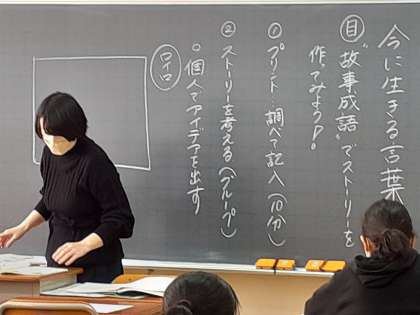 今に生きる言葉
目 "故事成語"でストーリーを
作ってみよう!
① プリント 調べて記入(10分)
② ストーリーを考える(グループ)
○個人でアイデアを出す
ロイロ